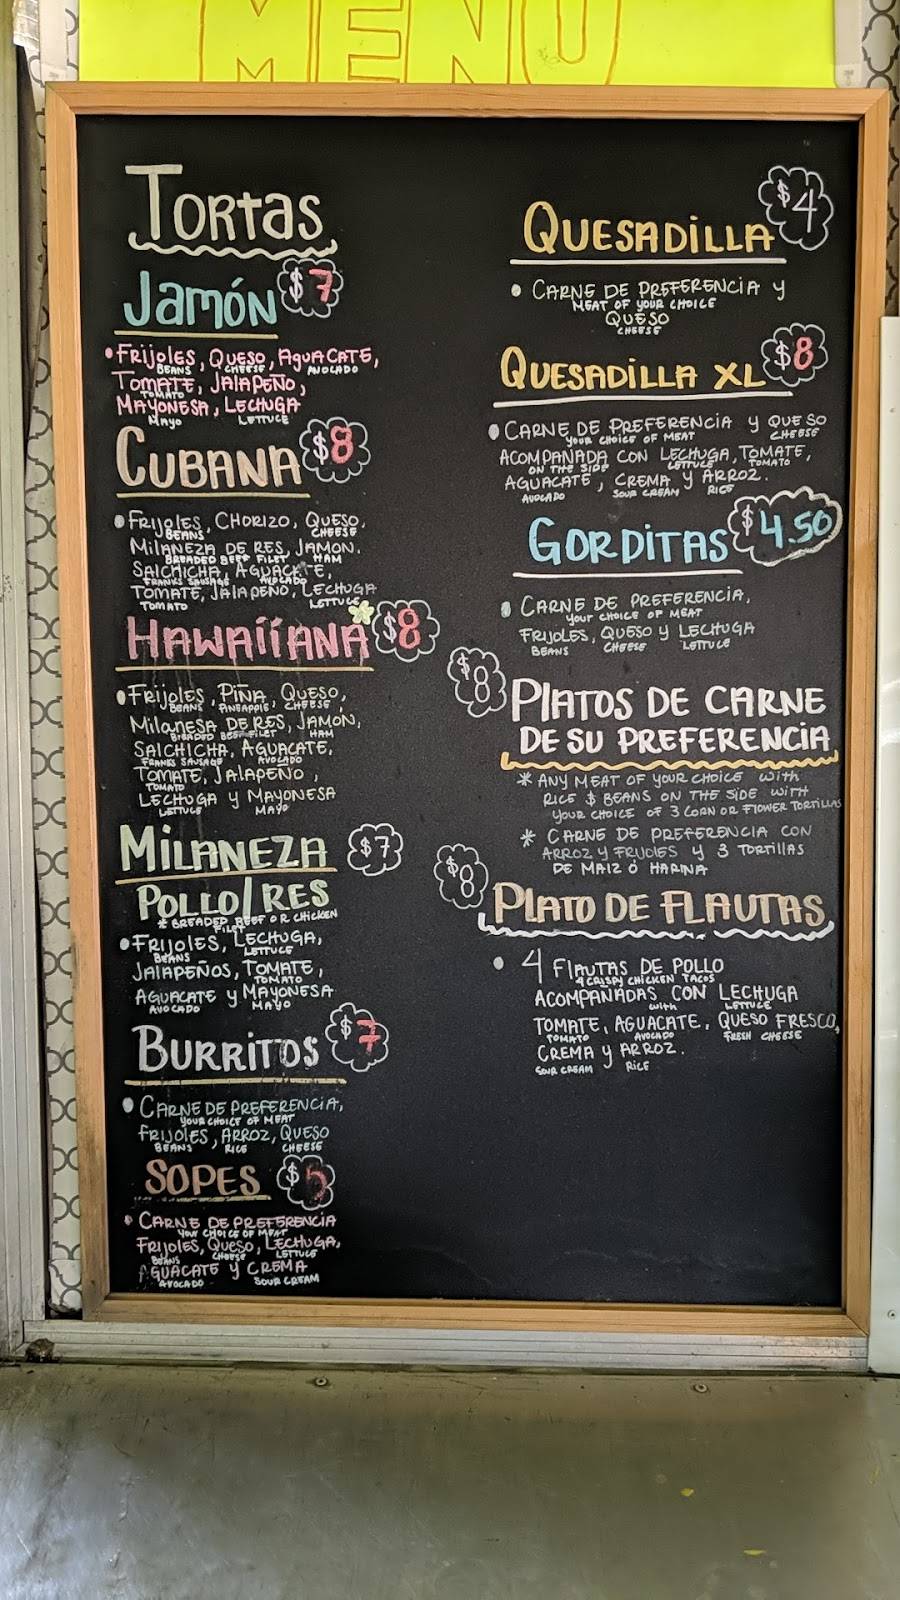 MENU
TORTAS
JAMÓN $7
• FRIJOLES, QUESO, AGUACATE,
BEANS CHEESE AVOCADO
TOMATE, JALAPEÑO,
TOMATO
MAYONESA, LECHUGA
MAYO LETTUCE
CUBANA $8
• FRIJOLES, CHORIZO, QUESO,
BEANS CHEESE
MILANEZA DE RES, JAMON.
BREADED BEEF FILET HAM
SALCHICHA, AGUACATE,
FRANKS SAUSAGE AVOCADO
TOMATE, JALAPEÑO, LECHUGA
TOMATO LETTUCE
HAWAIIANA $8
• FRIJOLES, PIÑA, QUESO,
BEANS PINEAPPLE CHEESE
MILANESA DE RES, JAMON,
BREADED BEEF FILET HAM
SALCHICHA, AGUACATE,
FRANKS SAUSAGE AVOCADO
TOMATE, JALAPEÑO,
TOMATO
LECHUGA Y MAYONESA
LETTUCE MAYO
MILANEZA $7
POLLO/RES
* BREADED BEEF OR CHICKEN
FILET
• FRIJOLES, LECHUGA,
BEANS LETTUCE
JALAPEÑOS, TOMATE,
TOMATO
AGUACATE Y MAYONESA
AVOCADO MAYO
BURRITOS $7
• CARNE DE PREFERENCIA,
YOUR CHOICE OF MEAT
FRIJOLES, ARROZ, QUESO
BEANS RICE CHEESE
SOPES $5
• CARNE DE PREFERENCIA
YOUR CHOICE OF MEAT
FRIJOLES, QUESO, LECHUGA,
BEANS CHEESE LETTUCE
AGUACATE Y CREMA
AVOCADO SOUR CREAM
QUESADILLA $4
• CARNE DE PREFERENCIA Y
MEAT OF YOUR CHOICE
QUESO
CHEESE
QUESADILLA XL $8
• CARNE DE PREFERENCIA Y QUESO
YOUR CHOICE OF MEAT CHEESE
ACOMPAÑADA CON LECHUGA, TOMATE,
ON THE SIDE LETTUCE TOMATO
AGUACATE, CREMA Y ARROZ.
AVOCADO SOUR CREAM RICE
GORDITAS $4.50
• CARNE DE PREFERENCIA,
YOUR CHOICE OF MEAT
FRIJOLES, QUESO Y LECHUGA
BEANS CHEESE LETTUCE
$8 PLATOS DE CARNE
DE SU PREFERENCIA
* ANY MEAT OF YOUR CHOICE WITH
RICE $ BEANS ON THE SIDE WITH
YOUR CHOICE OF 3 CORN OR FLOWER TORTILLAS
* CARNE DE PREFERENCIA CON
ARROZ Y FRIJOLES Y 3 TORTILLAS
DE MAIZ Ó HARINA
$8 PLATO DE FLAUTAS
• 4 FLAUTAS DE POLLO
4 CRISPY CHICKEN TACOS
ACOMPAÑADAS CON LECHUGA
WITH LETTUCE
TOMATE, AGUACATE, QUESO FRESCO,
TOMATO AVOCADO FRESH CHEESE
CREMA Y ARROZ.
SOUR CREAM RICE